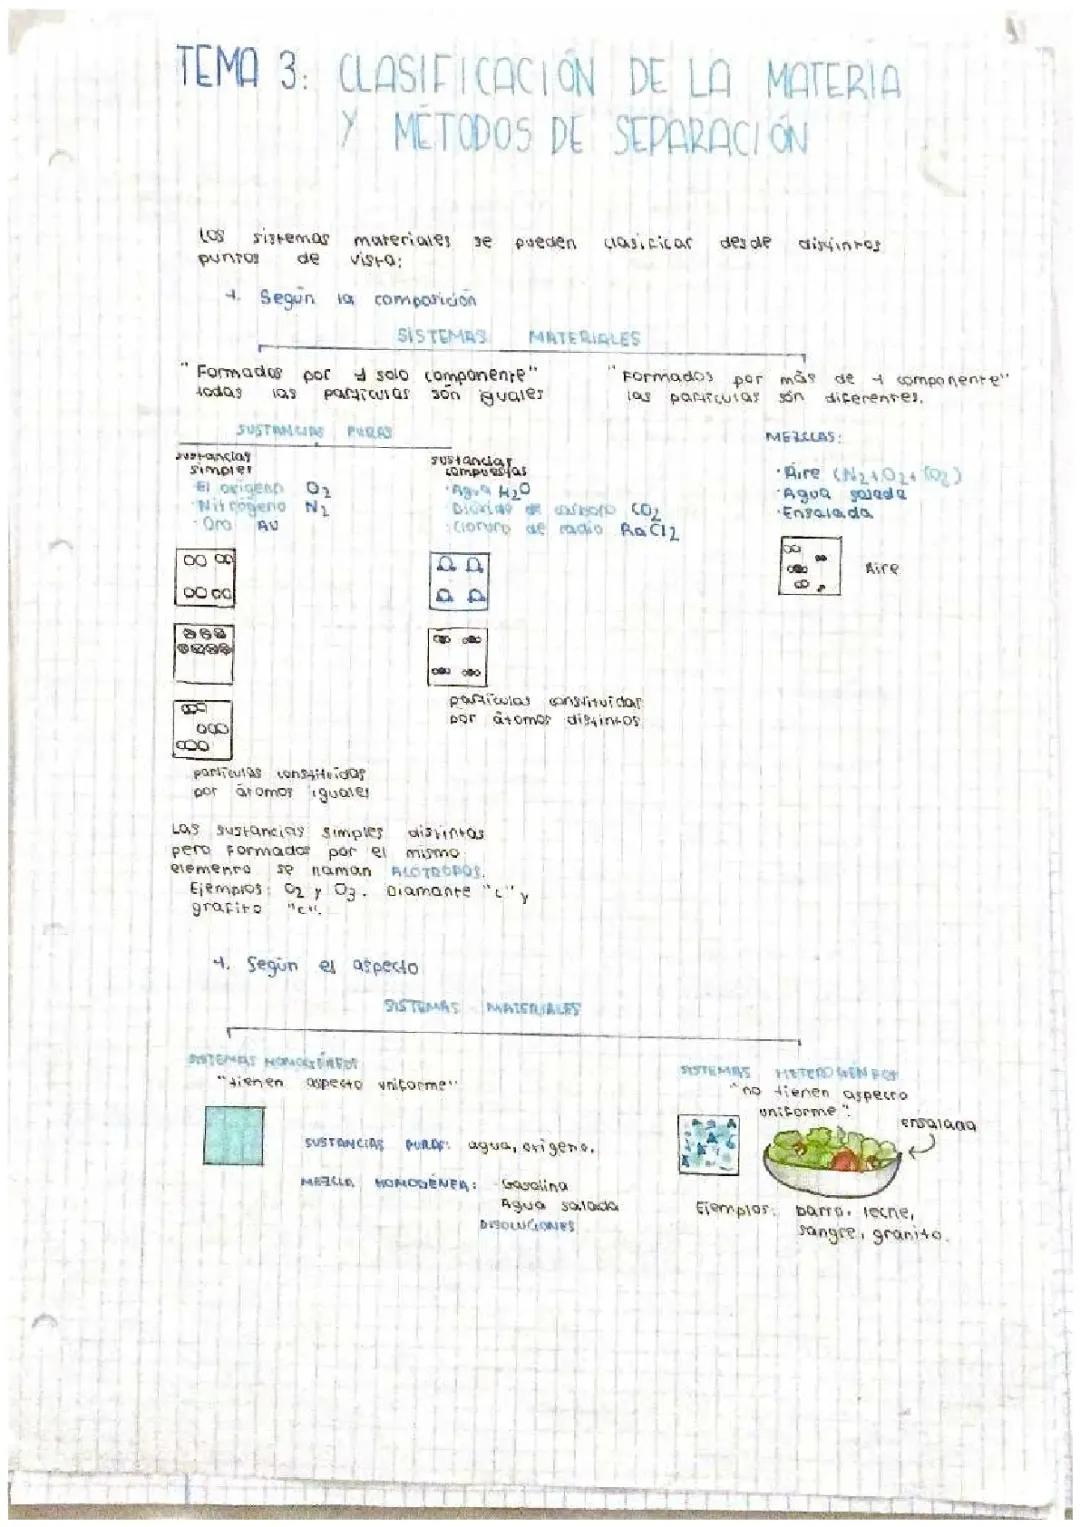 TEMA 3: CLASIFICACIÓN DE LA MATERIA
Y MÉTODOS DE SEPARACIÓN
Los sistemas materiales se pueden clasificar desde distintos
puntos de vista:
1. Según la composición
SISTEMAS MATERIALES
"Formados por 1 solo componente"
todas las partículas són iguales
"Formados por más de 1 componente"
las partículas són diferentes.
SUSTANCIAS PURAS
MEZCLAS:
sustancias
simples
· El oxígeno O2
· Nitrógeno N2
· Oro Au
sustancias
compuestas
· Agua H2O
· Dióxido de carbono CO2
· Cloruro de radio RaCl2
· Aire (N2+O2+CO2)
· Agua salada
· Ensalada
Aire
partículas constituidas
por átomos distintos
partículas constituidas
por átomos iguales
Las sustancias simples distintas
pero formados por el mismo
elemento se llaman ALÓTROPOS.
Ejemplos: O2 y O3. Diamante "C" y
grafito "C".
1. Según el aspecto
SISTEMAS MATERIALES
SISTEMAS HOMOGÉNEOS
"tienen aspecto uniforme"
SUSTANCIAS PURAS: agua, oxígeno.
MEZCLA HOMOGÉNEA: Gasolina
Agua salada
DISOLUCIONES
SISTEMAS HETEROGÉNEOS
"no tienen aspecto
uniforme".
ensalada
Ejemplos: barro, leche,
sangre, granito.